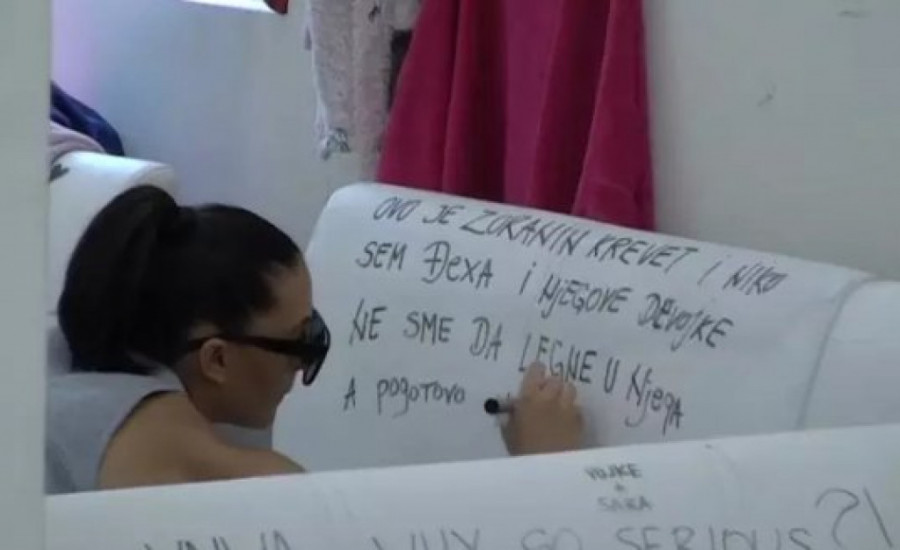 OVO JE ZORANIN KREVET I NIKO
SEM ĐEXA I NJEGOVE DEVOJKE
NE SME DA LEGNE U NJEGA
A POGOTOVO
VOJKE
+
SARA
WHY SO SERIOUS?!